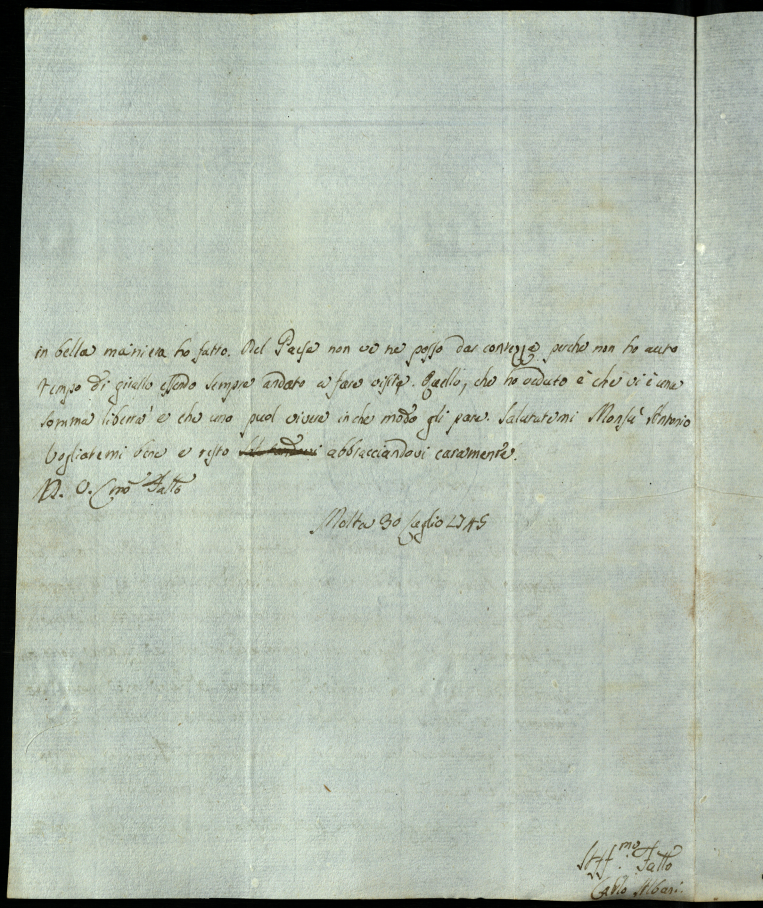 in bella maniera ho fatto. Del Paese non ve ne posso dar contezza perche non ho auto
tempo di girallo essendo sempre andato a fare visite. Quello, che ho veduto è che vi è una
somma libertà e che uno puol vivere in che modo gli pare. Salutatemi Monsù Antonio
Vogliatemi bene e resto abbracciandovi caramente.
D. V. Cmo Fatto
Malta 30 Luglio 1745
Affmo Fatto
Carlo Albani